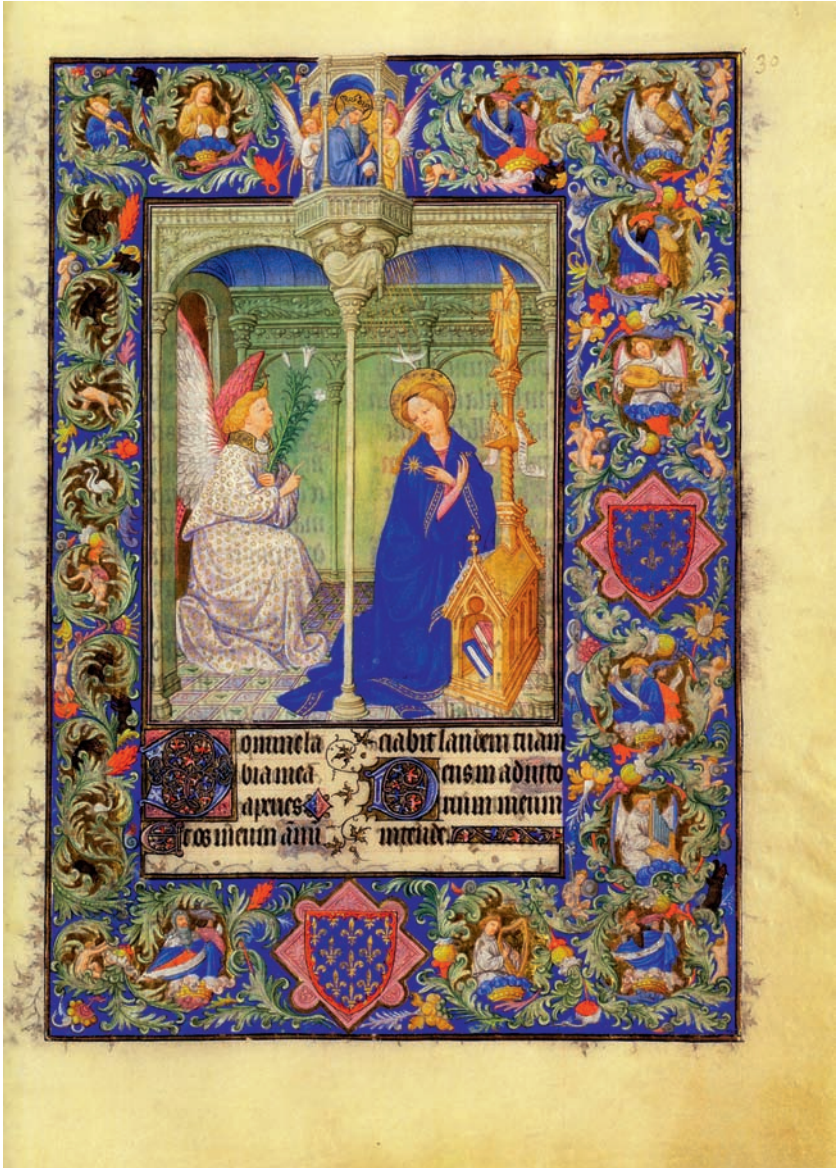 30
Domine la
bia mea
aperies
Et os meum ānū
ciabit laudem tuam
Deus in adiuto
rium meum
intende.